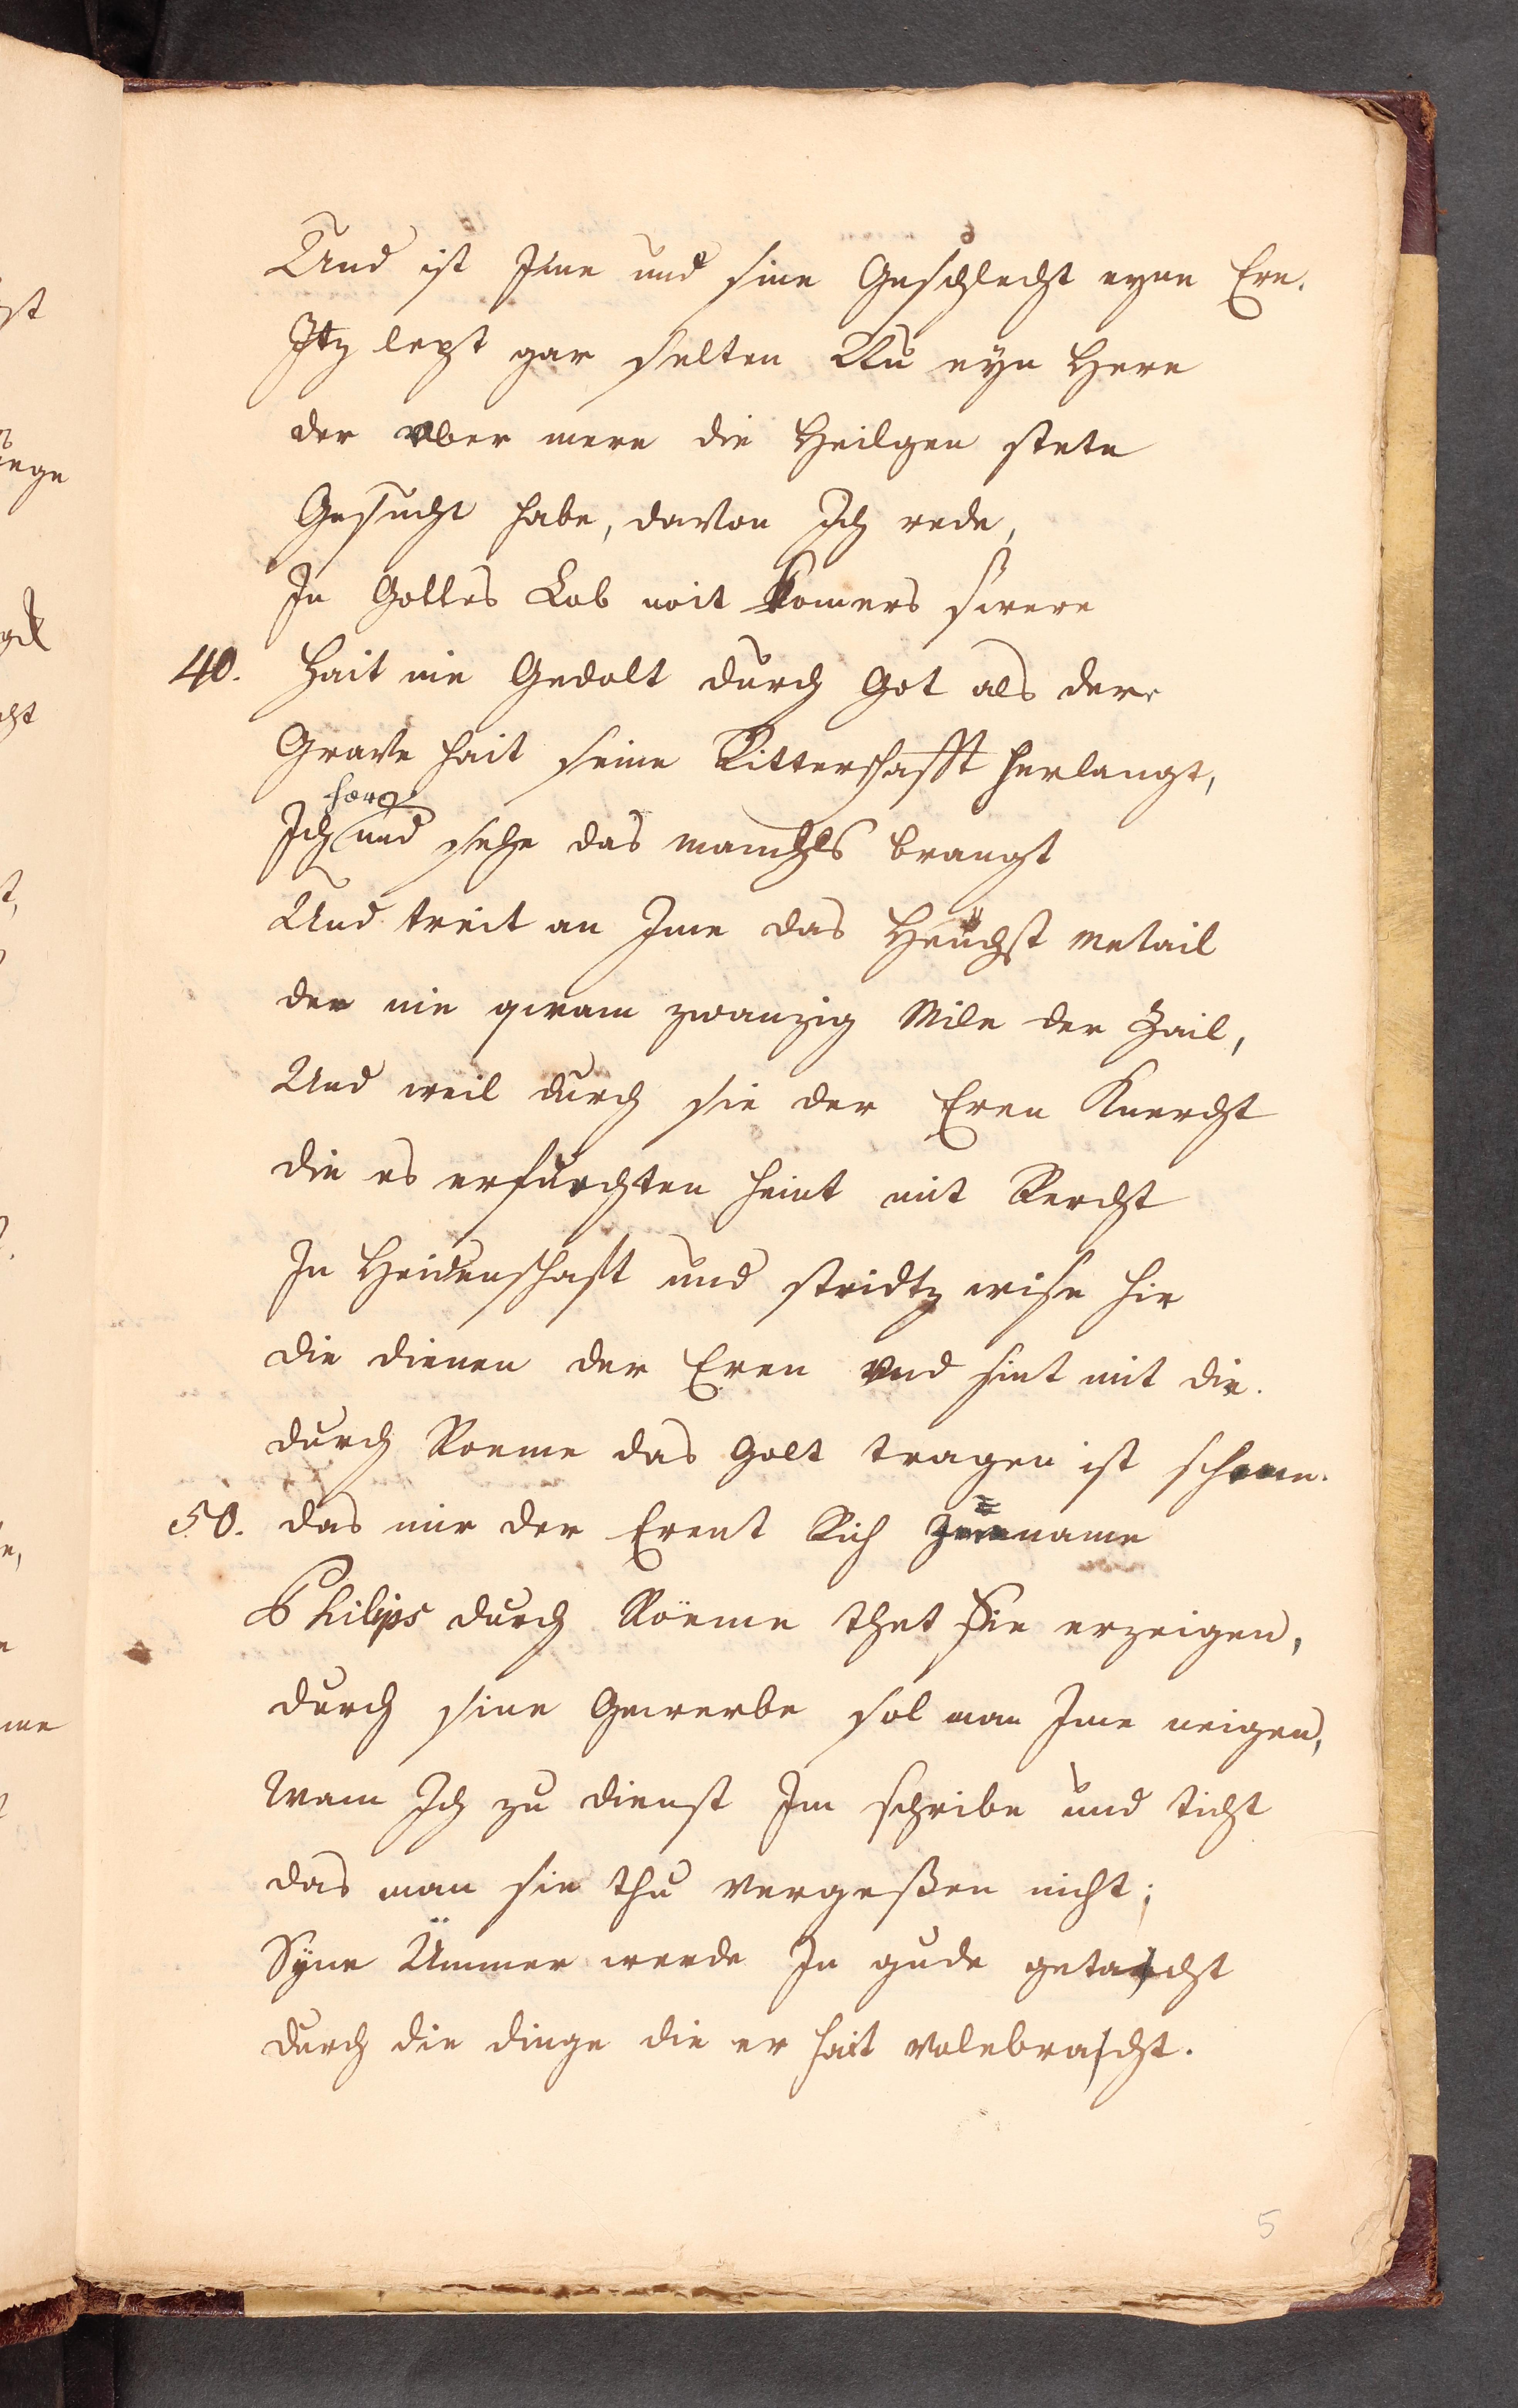 Und ist Ime und sine Geschlecht eyne Ere.
Itz lept gar selten Nu eyn Here
der vber mere die Heilgen stete
Gesucht habe, davon Ich rede,
In Gottes Lob noit komers swere
40. Hait nie Gedolt durch Got als der
Grave hait seine Ritterschafft herlangt,
hore
Ich und sehe das manchs brangt
Und treit an Ime das Heuchst metail
der nie qwam zwanzig Mile der Zail,
Und weil durch sie der Eren Knercht
die es erfurchten heint mit Rercht
In Heidenschaft und stridtz wise hie
die dienen der Eren vnd sint mit die.
durch Roeme das Golt tragen ist scheme.
50. das mir der Erent Rich zuname
Philips durch Röeme thet Sie erzeigen,
durch sine Gewerbe sol man Ime neigen,
Wam Ich zu dienst Im schribe und ticht
das man sie thu vergeßen nicht;
Syne Ümmer werde In gude getaicht
durch die dinge die er hait volebraicht.
5